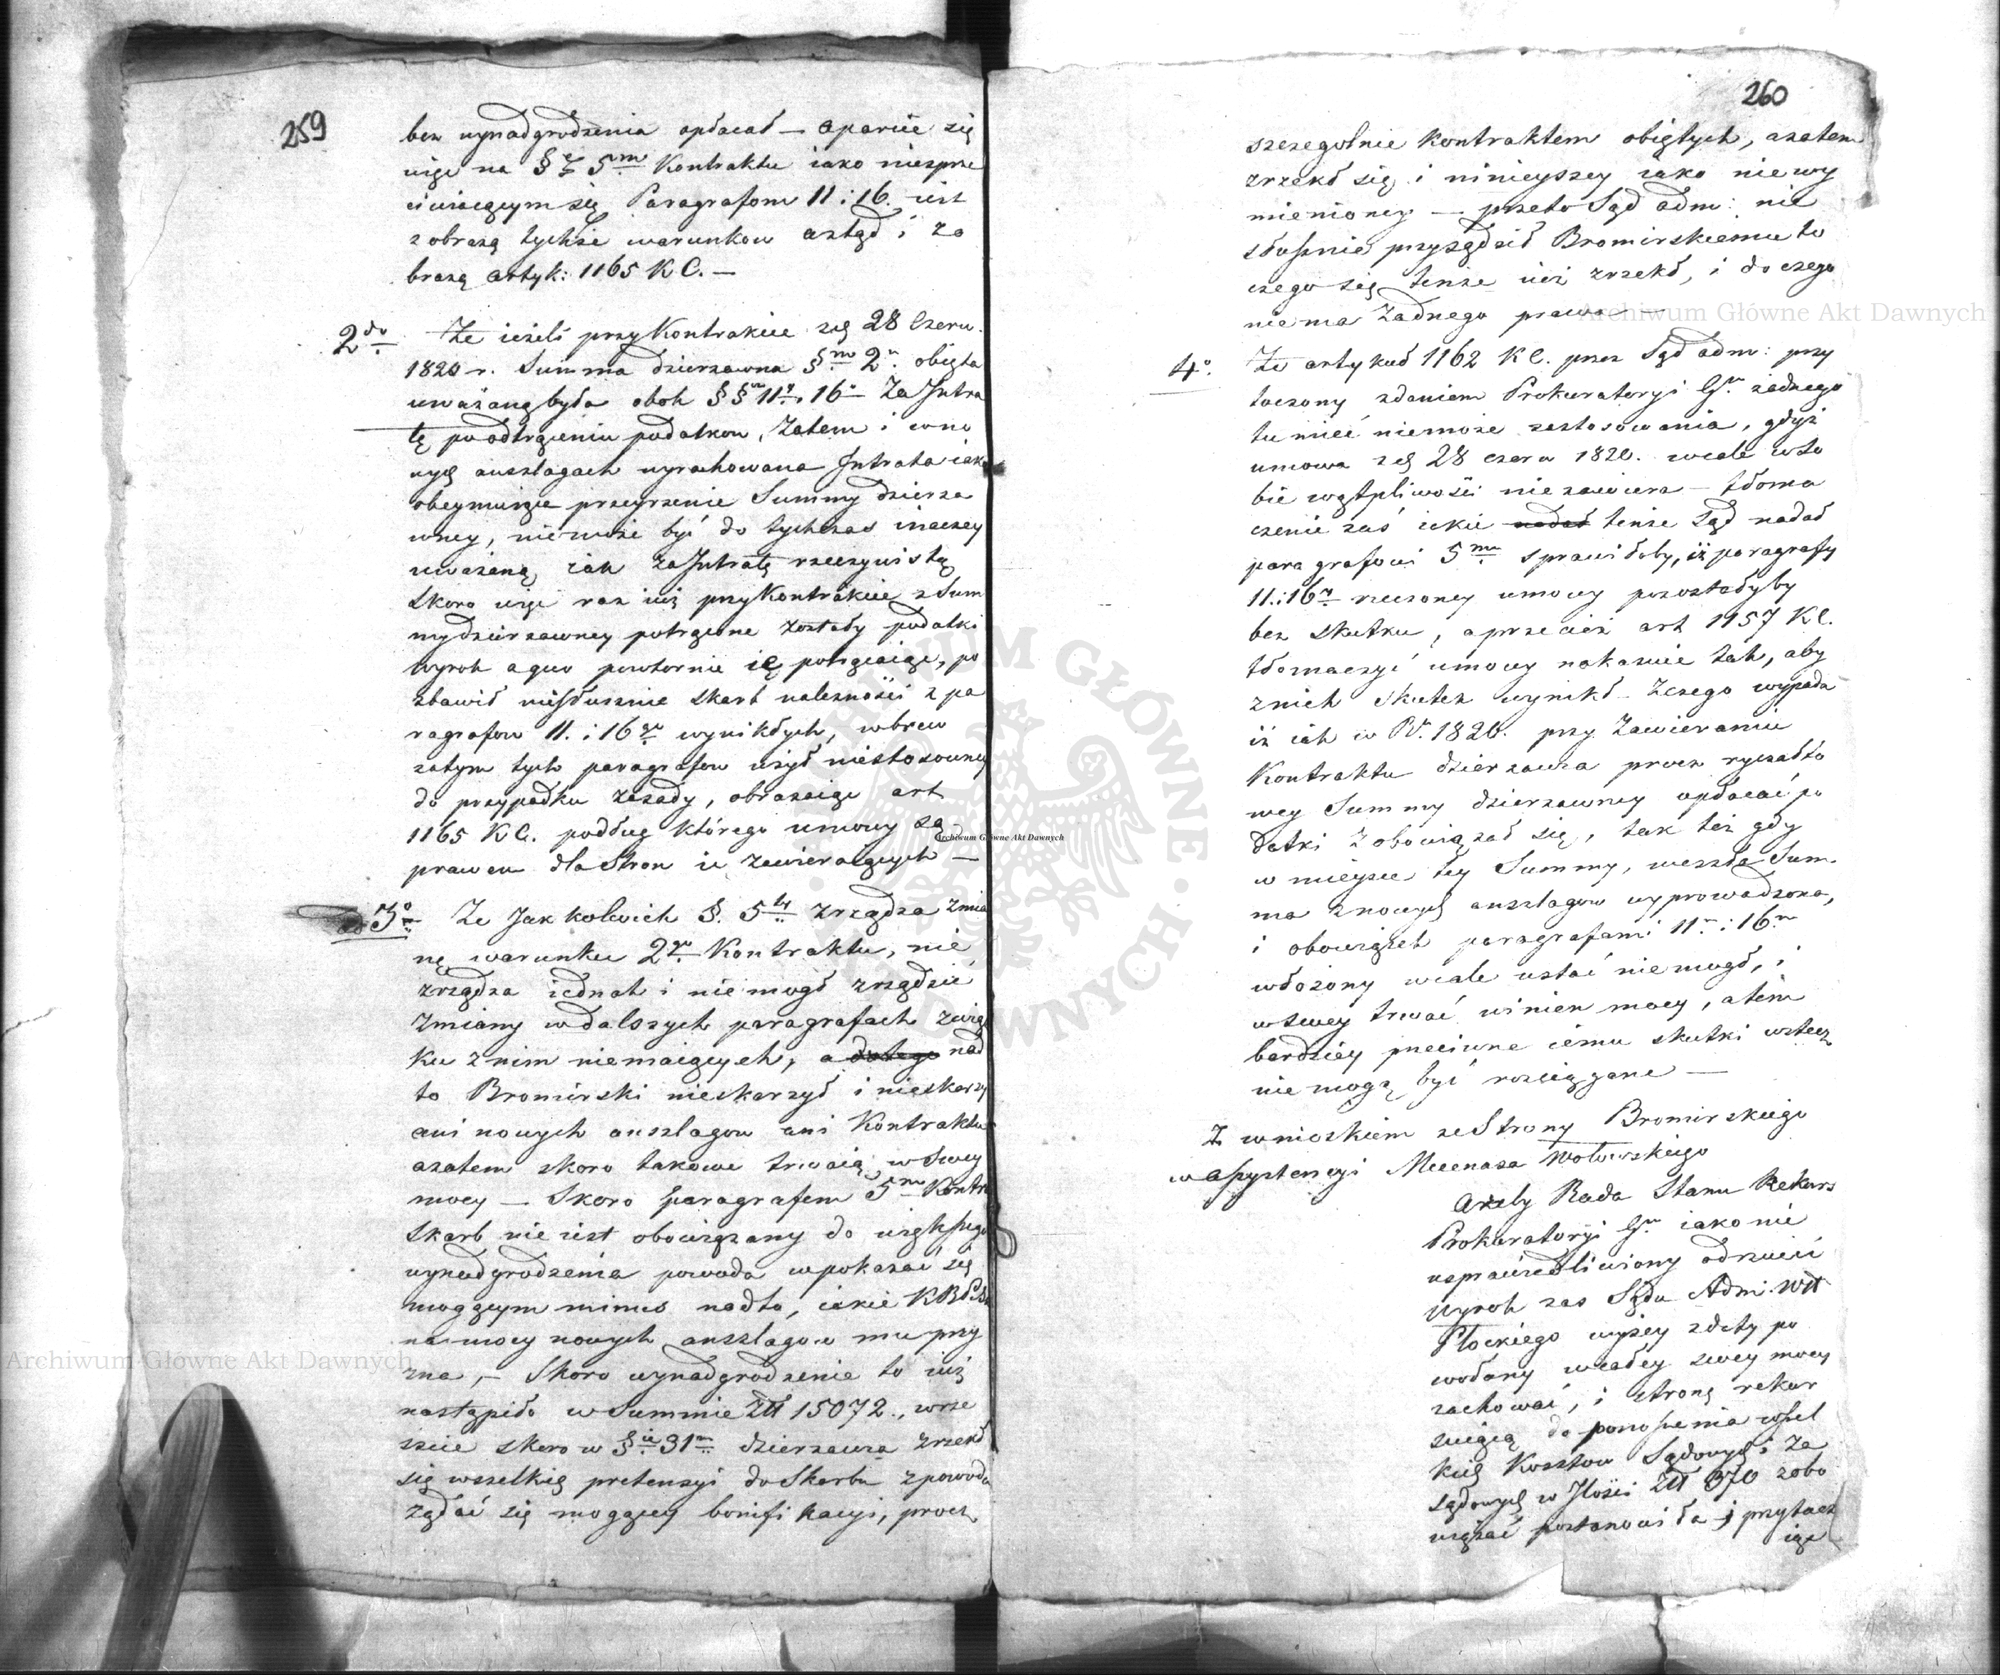 259
bez wynadgrodzenia opłacał — oparcie się
więc na § 5m Kontraktu iako niesprze
ciwiaiącym się Paragrafom 11 i 16. iest
z obrazą tychże warunkow a ztąd i zo
brazą artyk: 1165 KC. —
2do Że ieżeli przy Kontrakcie z 28 Czerw.
1820 r. Summa dzierzawna §m 2m obięta
uważaną była obok §§ 11 i 16 za Intra
tę po odtrąceniu podatkow, zatem i w no
wych anszlagach wyrachowana Intrata iako
obeymuiąca przeyrzenie Summy dzierza
wney, niemoże być do tychczas inaczey
uważaną iak za Intratę rzeczywistą
skoro więc raz iuż przy Kontrakcie z Sum
my dzierzawney potrącone zostały podatki
Wyrok a quo powtornie ie potrącaiąc, po
zbawił niesłusznie skarb należności z pa
ragrafow 11. i 16 wynikłych, wbrew
zatym tych paragrafow użył niestosowney
do przypadku zasady, obrażaiąc art
1165 KC. podług którego umowy są
prawem dla Stron ie zawieraiących —
3o Że Jakkolwiek §. 5ty zrządza zmia
nę warunku 2go Kontraktu, nie
zrządza iednak i nie mogł zrządzić
zmiany w dalszych paragrafach związ
ku z nim niemaiących, a dotego nad
to Bromirski nieskarzył i nieskarzy
ani nowych anszlagow ani Kontraktu
azatem skoro takowe trwaią w swey
mocy — Skoro paragrafem 5m Kontr
Skarb nie iest obowiązany do większego
wynadgrodzenia powoda w pokazać się
mogącym minus nadto, iakie
na mocy nowych anszlagow mu przy
zna, — Skoro wynadgrodzenie to iuż
nastąpiło w Summie Złt 15072., wre
szcie skoro w § 31m dzierzawca zrzekł
się wszelkiey pretensyi do Skarbu z powodu
żądać się mogącey bonifikacyi, prócz
260
szczegolnie kontraktem obiętych, azatem
zrzekł się i ninieyszey iako niewy
mienioney — przeto Sąd adm: nie
słusznie przysądził Bromirskiemu to
czego się tenże iuż zrzekł, i do czego
niema żadnego prawa —
4o Że artykuł 1162 KC. przez Sąd adm: przy
toczony zdaniem Prokuratoryi Gn żadnego
tu mieć niemoże zastosowania, gdyż
umowa z 28 czerw 1820. wcale w so
bie wątpliwości niezawiera — tłoma
czenie zaś iakie nadał tenże Sąd nadał
paragrafowi 5mu sprawiłoby, iż paragrafy
11. i 16 rzeczoney umowy pozostałyby
bez skutku, a przecież art 1157 KC.
tłomaczyć umowy nakazuie tak, aby
z nich skutek wynikł — zczego wypada
iż iak w R. 1820. przy zawieraniu
Kontraktu dzierzawca procz ryczałto
wey Summy dzierzawney opłacać po
datki zobowiązał się, tak też gdy
w mieysce tey Summy, weszła Sum
ma z nowych anszlagow wyprowadzona,
i obowiązek paragrafami 11m i 16m
włożony wcale ustać niemogł, i
w swey trwać winien mocy, a tem
bardziey przeciwne iemu skutki wstecz
nie mogą być rozciągane —
Z wnioskiem ze Strony Bromirskiego
w assystencyi Mecenasa Wołowskiego
Ażeby Rada Stanu Rekurs
Prokuratoryi Gn iako nie
usprawiedliwiony odrzucić
Wyrok zas Sądu Adm. Wtt
Płockiego wyżey z daty po
wołany w całey swey mocy
zachować, i stronę rekur
suiącą do ponoszenia wszel
kich Kosztow Sądowych i za
sądowych w Ilości Złt 370 zobo
wiązać postanowiła i przytacz
iąc
Archiwum Główne Akt Dawnych
Archiwum Główne Akt Dawnych
Archiwum Główne Akt Dawnych
ARCHIWUM GŁÓWNE AKT DAWNYCH